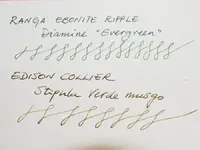 RANGA EBONITE RIPPLE
Diamine "Evergreen"
EDISON COLLIER
Stipula Verde musgo